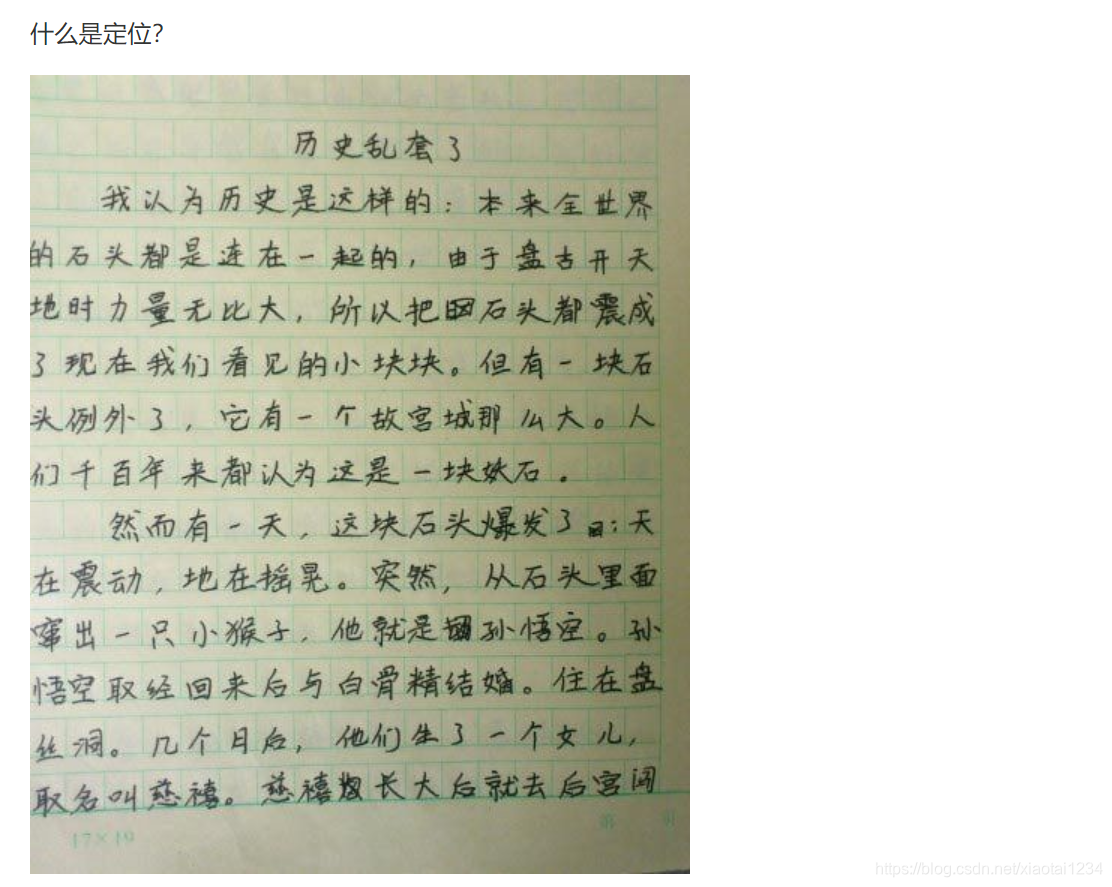 什么是定位?
历史乱套了
我认为历史是这样的：本来全世界
的石头都是连在一起的，由于盘古开天
地时力量无比大，所以把石头都震成
了现在我们看见的小块块。但有一块石
头例外了，它有一个故宫城那么大。人
们千百年来都认为这是一块妖石。
然而有一天，这块石头爆发了：天
在震动，地在摇晃。突然，从石头里面
窜出一只小猴子，他就是孙悟空。孙
悟空取经回来后与白骨精结婚。住在盘
丝洞。几个月后，他们生了一个女儿，
取名叫慈禧。慈禧长大后就去后宫闯
17×19
第 页
https://blog.csdn.net/xiaotai1234